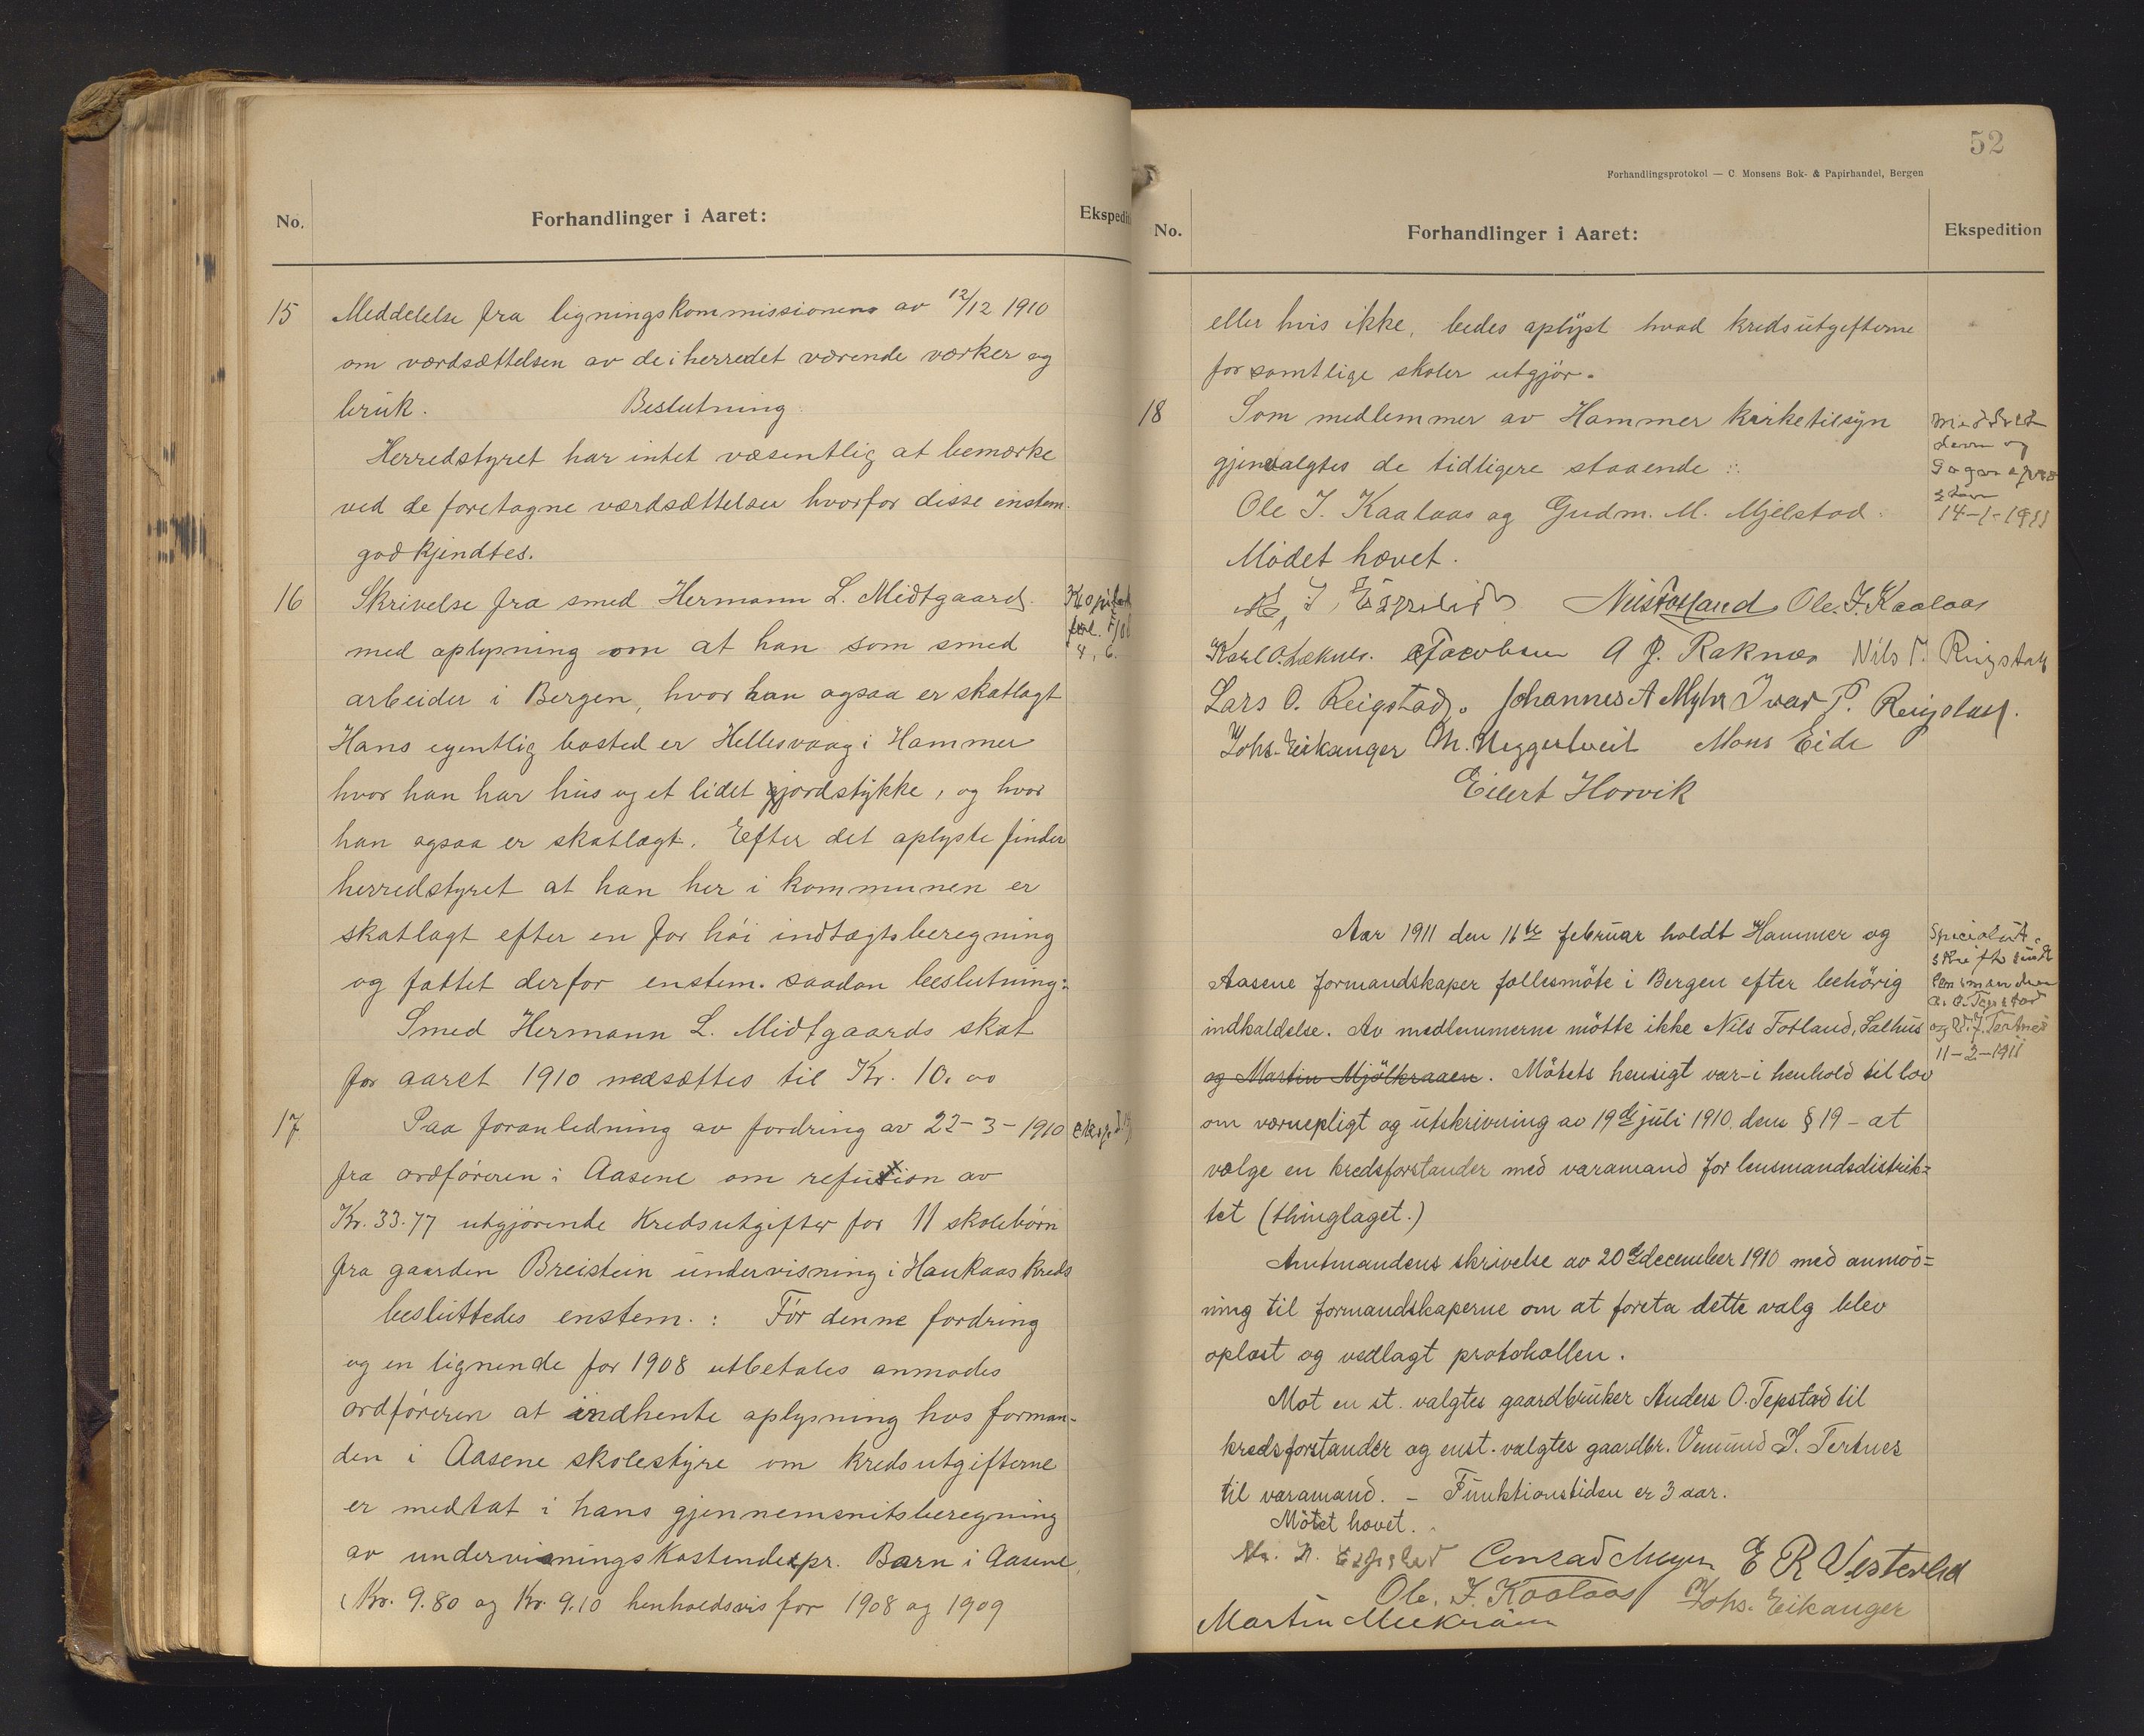 No.
Forhandlinger i Aaret:
15 Meddelelse fra ligningskommissionen av 12/12 1910
om værdsættelsen av de i herredet værende værker og
bruk. Beslutning
Herredstyret har intet væsentlig at bemærke
ved de foretagne værdsættelser hvorfor disse enstem.
godkjendtes.
16 Skrivelse fra smed Hermann L. Midtgaard
med oplysning om at han som smed
arbeider i Bergen, hvor han ogsaa er skatlagt
Hans egentlig bosted er Hellesvaag i Hammer
hvor han har hus og et lidet jordstykke, og hvor
han ogsaa er skatlagt. Efter det oplyste finder
herredstyret at han her i kommunen er
skatlagt efter en for høi indtægtsberegning
og fattet derfor enstem. saadan beslutning:
Smed Hermann L. Midtgaards skat
for aaret 1910 nedsættes til Kr. 10.00
17 Paa foranledning av fordring av 22-3-1910
fra ordføreren i Aasene om refusion av
Kr. 33.77 utgjørende Kredsutgifter for 11 skolebørn
fra gaarden Breistein undervisning i Haukaas kreds
besluttedes enstem. : Før denne fordring
og en lignende for 1908 utbetales anmodes
ordføreren at indhente oplysning hos forman-
den i Aasene skolestyre om kredsutgifterne
er medtat i hans gjennemsnitsberegning
av undervisningskostende pr. Barn i Aasene
(Kr. 9.80 og Kr. 9.10 henholdsvis for 1908 og 1909
52
Forhandlingsprotokol — C. Monsens Bok- & Papirhandel, Bergen
No.
Forhandlinger i Aaret:
Ekspedition
eller hvis ikke, bedes oplyst hvad kredsutgifterne
for samtlige skoler utgjør.
18 Som medlemmer av Hammer kirketilsyn
gjenvalgtes de tidligere staaende :
Ole J. Kaalaas og Gudm. M. Mjelstad.
Mødet hævet.
14-1-1911
Nils Totland Ole. J. Kaalaas
Jacobsen A J. Raknes Nils T. Rigstad
Lars O. Reigstad. Johannes A Myhr Ivar P. Reigstad.
Johs. Eikanger M. Neggerlveit Mons Eide
Eilert Horvik
Aar 1911 den 16de februar holdt Hammer og
Aasene formandskaper fællesmøte i Bergen efter behørig
indkaldelse. Av medlemmerne møtte ikke Nils Totland, Salhus
og Martin Mjölkraaen. Møtets hensigt var - i henhold til lov
om vernepligt og utskrivning av 19de juli 1910. dens § 19 - at
vælge en kredsforstander med varamand for lensmandsdistrik=
tet (thinglaget.)
Amtmandens skrivelse av 20de december 1910 med anmod=
ning til formandskaperne om at foreta dette valg blev
oplæst og vedlagt protokollen.
Mot en st. valgtes gaardbruker Anders O. Tepstad til
kredsforstander og enst. valgtes gaardbr. Vemund J. Tertnes
til varamand. - Funktionstiden er 3 aar.
Møtet hævet.
og V. J. Tertnes
11-2-1911
Conrad Meyer E R Westerlid
Ole. J. Kaalaas Johs. Eikanger